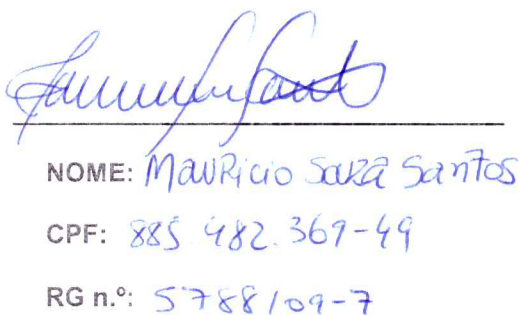 NOME: Mauricio Sara Santos
CPF: 885 482.369-49
RG n.º: 5788109-7